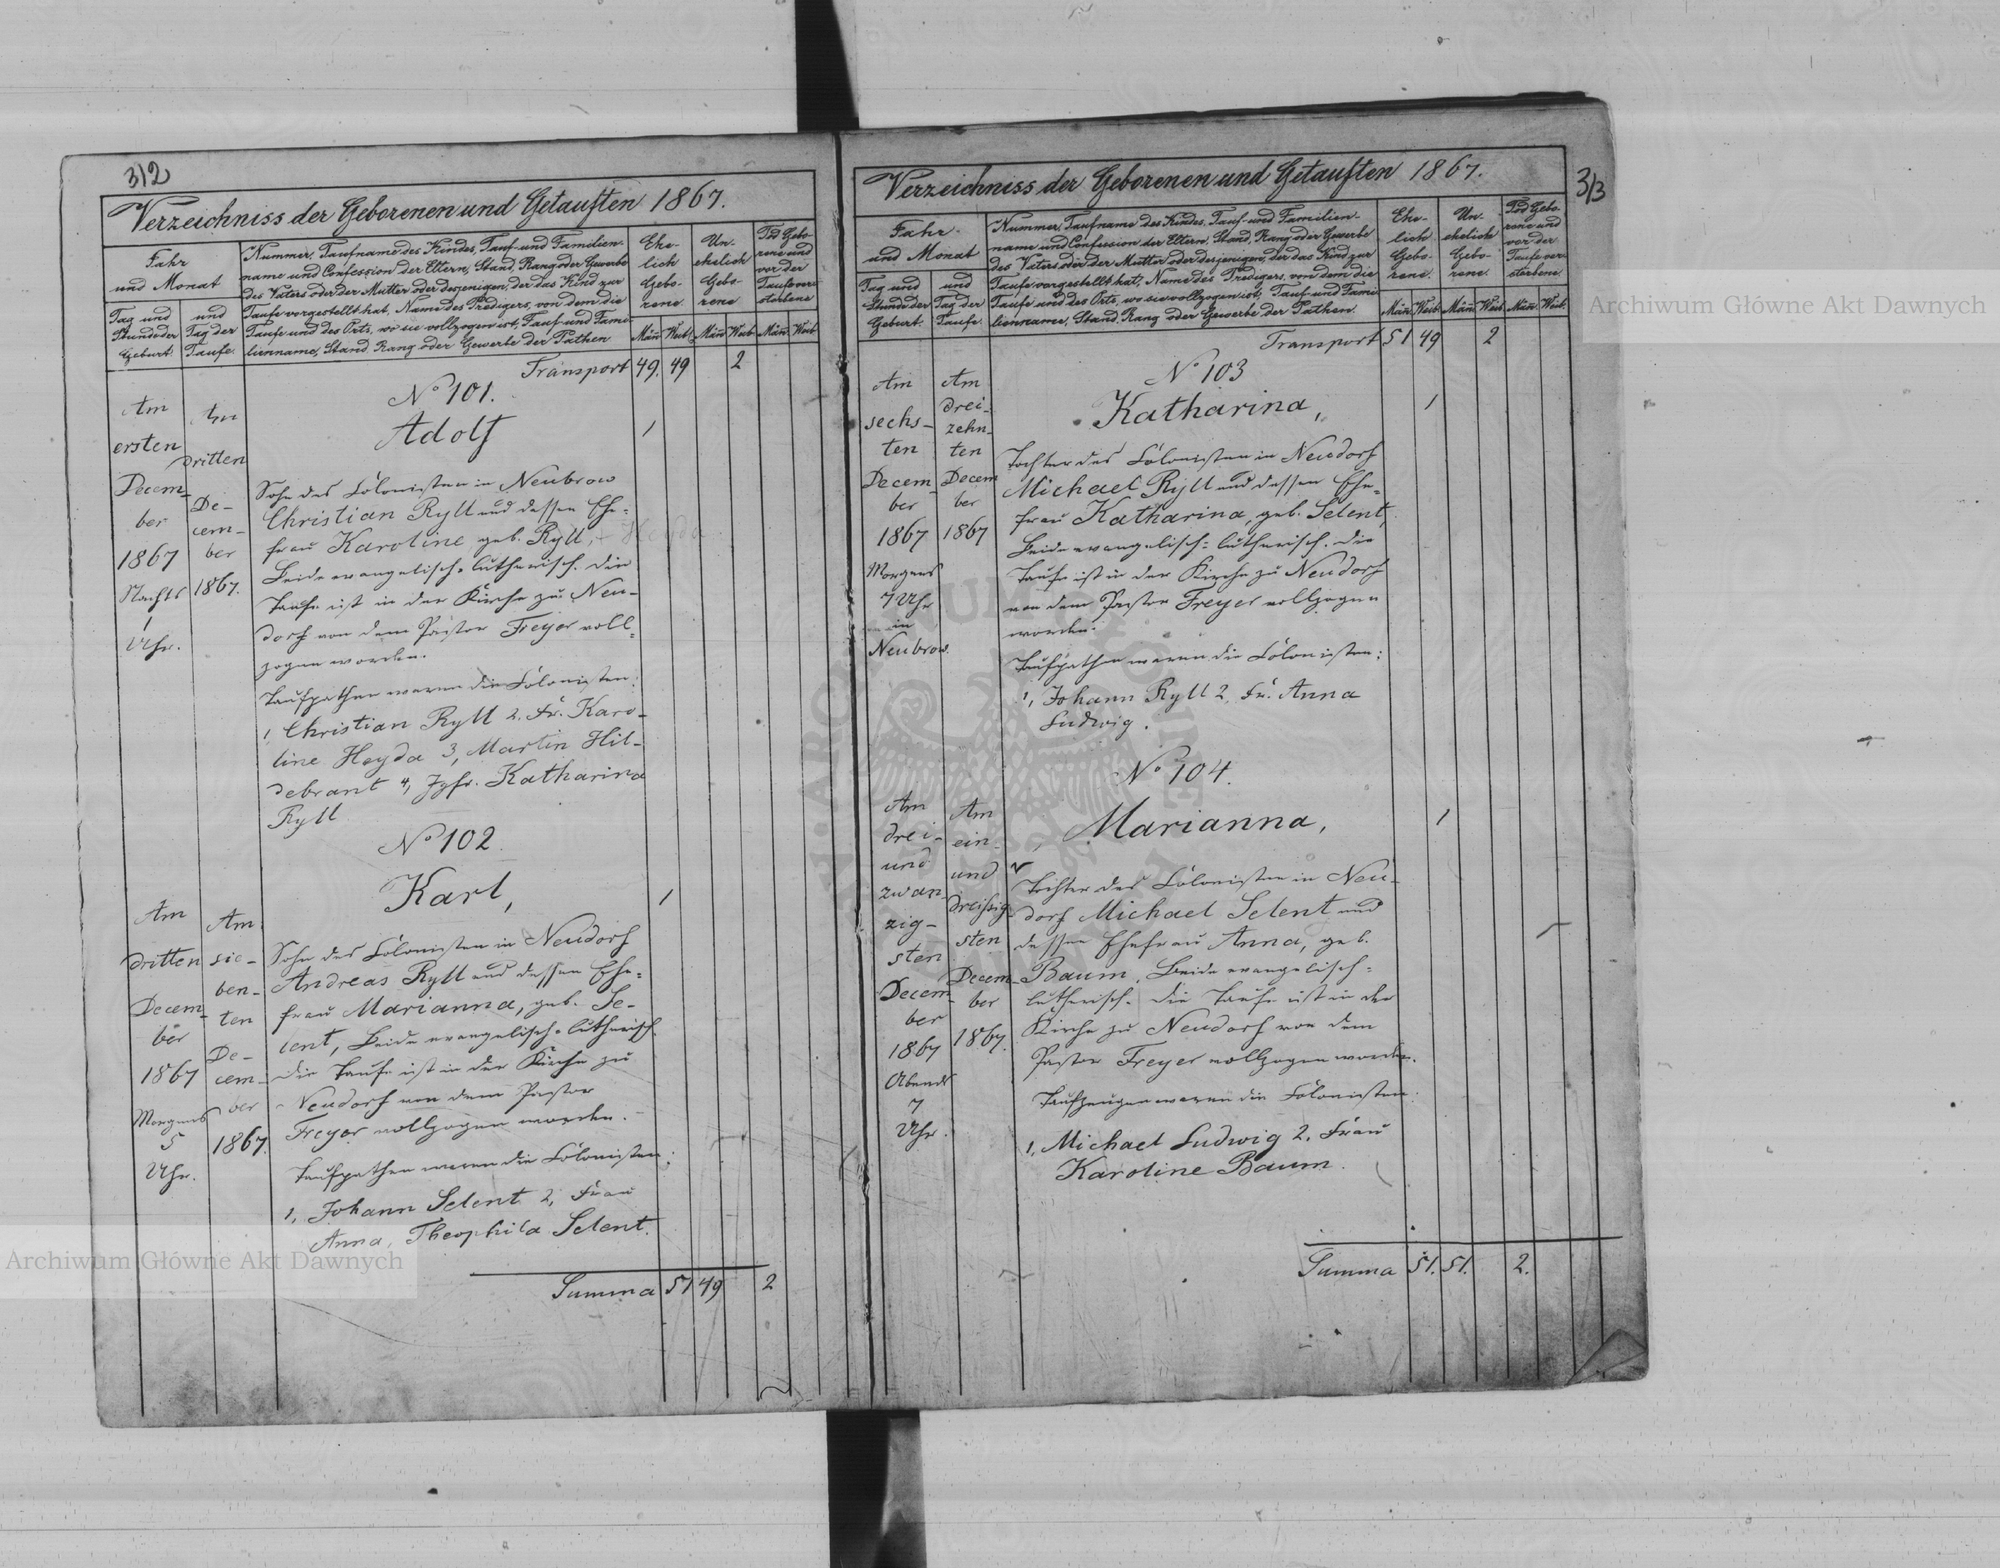 312
Verzeichniss der Geborenen und Getauften 1867.
Jahr
und Monat
Tag und
Stunde der
Geburt.
und
Tag der
Taufe.
Nummer, Taufname des Kindes, Tauf- und Familien-
name und Confession der Eltern, Stand, Rang oder Gewerbe
des Vaters oder der Mutter oder desjenigen, der das Kind zur
Taufe vorgestellt hat, Name des Predigers, von dem die
Taufe und des Orts, wo sie vollzogen ist, Tauf- und Fami-
lienname, Stand Rang oder Gewerbe der Pathen
Ehe-
lich
Gebo-
rene.
Un-
ehelich
Gebo-
rene
Tod Gebo-
rene und
vor der
Taufe ver-
storbene
Män Weib. Män Weib. Män Weib
Transport 49. 49 2
Am
ersten
Decem-
ber
1867
Nachts
1
Uhr.
Am
dritten
De-
cem-
ber
1867.
No 101.
Adolf
1
Sohn des Colonisten in Neubrow
Christian Ryll und dessen Ehe-
frau Karoline geb. Ryll, Heyda
Beide evangelisch-lutherisch. Die
Taufe ist in der Kirche zu Neu-
dorf von dem Pastor Freyer voll-
zogen worden.
Taufpathen waren die Colonisten:
1, Christian Ryll 2. Fr. Karo-
line Heyda 3, Martin Hil-
debrant 4, Jgfr. Katharina
Ryll
No 102.
Karl,
1
Am
dritten
Decem-
ber
1867
Morgens
5
Uhr.
Am
sie-
ben-
ten
De-
cem-
ber
1867.
Sohn des Colonisten in Neudorf
Andreas Ryll und dessen Ehe-
frau Marianna, geb. Se-
lent, Beide evangelisch-lutherisch.
Die Taufe ist in der Kirche zu
Neudorf von dem Pastor
Freyer vollzogen worden.
Taufpathen waren die Colonisten:
1, Johann Selent 2, Frau
Anna, Theophila Selent.
Summa 51 49 2
313
Verzeichniss der Geborenen und Getauften 1867.
Jahr
und Monat
Tag und
Stunde der
Geburt.
und
Tag der
Taufe.
Nummer, Taufname des Kindes, Tauf- und Familien-
name und Confession der Eltern, Stand, Rang oder Gewerbe
des Vaters oder der Mutter oder desjenigen, der das Kind zur
Taufe vorgestellt hat, Name des Predigers, von dem die
Taufe und des Orts, wo sie vollzogen ist, Tauf- und Fami-
lienname, Stand, Rang oder Gewerbe der Pathen.
Ehe-
lich
Gebo-
rene.
Un-
ehelich
Gebo-
rene.
Tod Gebo-
rene und
vor der
Taufe ver-
storbene.
Män Weib. Män Weib. Män Weib.
Transport 51 49 2
Am
sechs-
ten
Decem-
ber
1867
Morgens
7 Uhr
in
Neubrow.
Am
drei-
zehn-
ten
Decem
ber
1867
No 103
Katharina,
1
Tochter des Colonisten in Neudorf
Michael Ryll und dessen Ehe-
frau Katharina, geb. Selent,
Beide evangelisch-lutherisch. Die
Taufe ist in der Kirche zu Neudorf
von dem Pastor Freyer vollzogen
worden.
Taufpathen waren die Colonisten:
1, Johann Ryll 2, Fr. Anna
Ludwig.
No 104.
Marianna,
1
Am
drei-
und
zwan-
zig-
sten
Decem-
ber
1867
Abends
7
Uhr.
Am
ein-
und
dreissig-
sten
Decem-
ber
1867.
Tochter des Colonisten in Neu-
dorf Michael Selent und
dessen Ehefrau Anna, geb.
Baum, Beide evangelisch-
lutherisch. Die Taufe ist in der
Kirche zu Neudorf von dem
Pastor Freyer vollzogen worden.
Taufzeugen waren die Colonisten:
1, Michael Ludwig 2, Frau
Karoline Baum.
Summa 51. 51. 2.
Archiwum Główne Akt Dawnych
Archiwum Główne Akt Dawnych